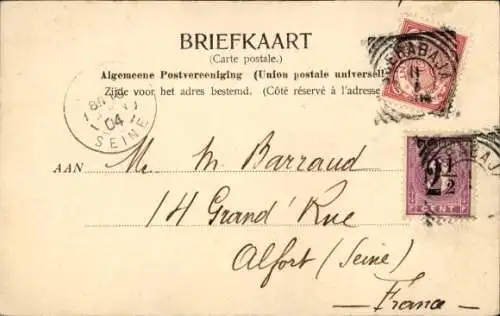 BRIEFKAART
(Carte postale.)
Algemeene Postvereeniging (Union postale universell
Zijde voor het adres bestemd. (Côté réservé à l'adresse
04
SEINE
AAN
Mr. M Barraud
14 Grand' Rue
Alfort (Seine)
— France —
2 1/2
CENT